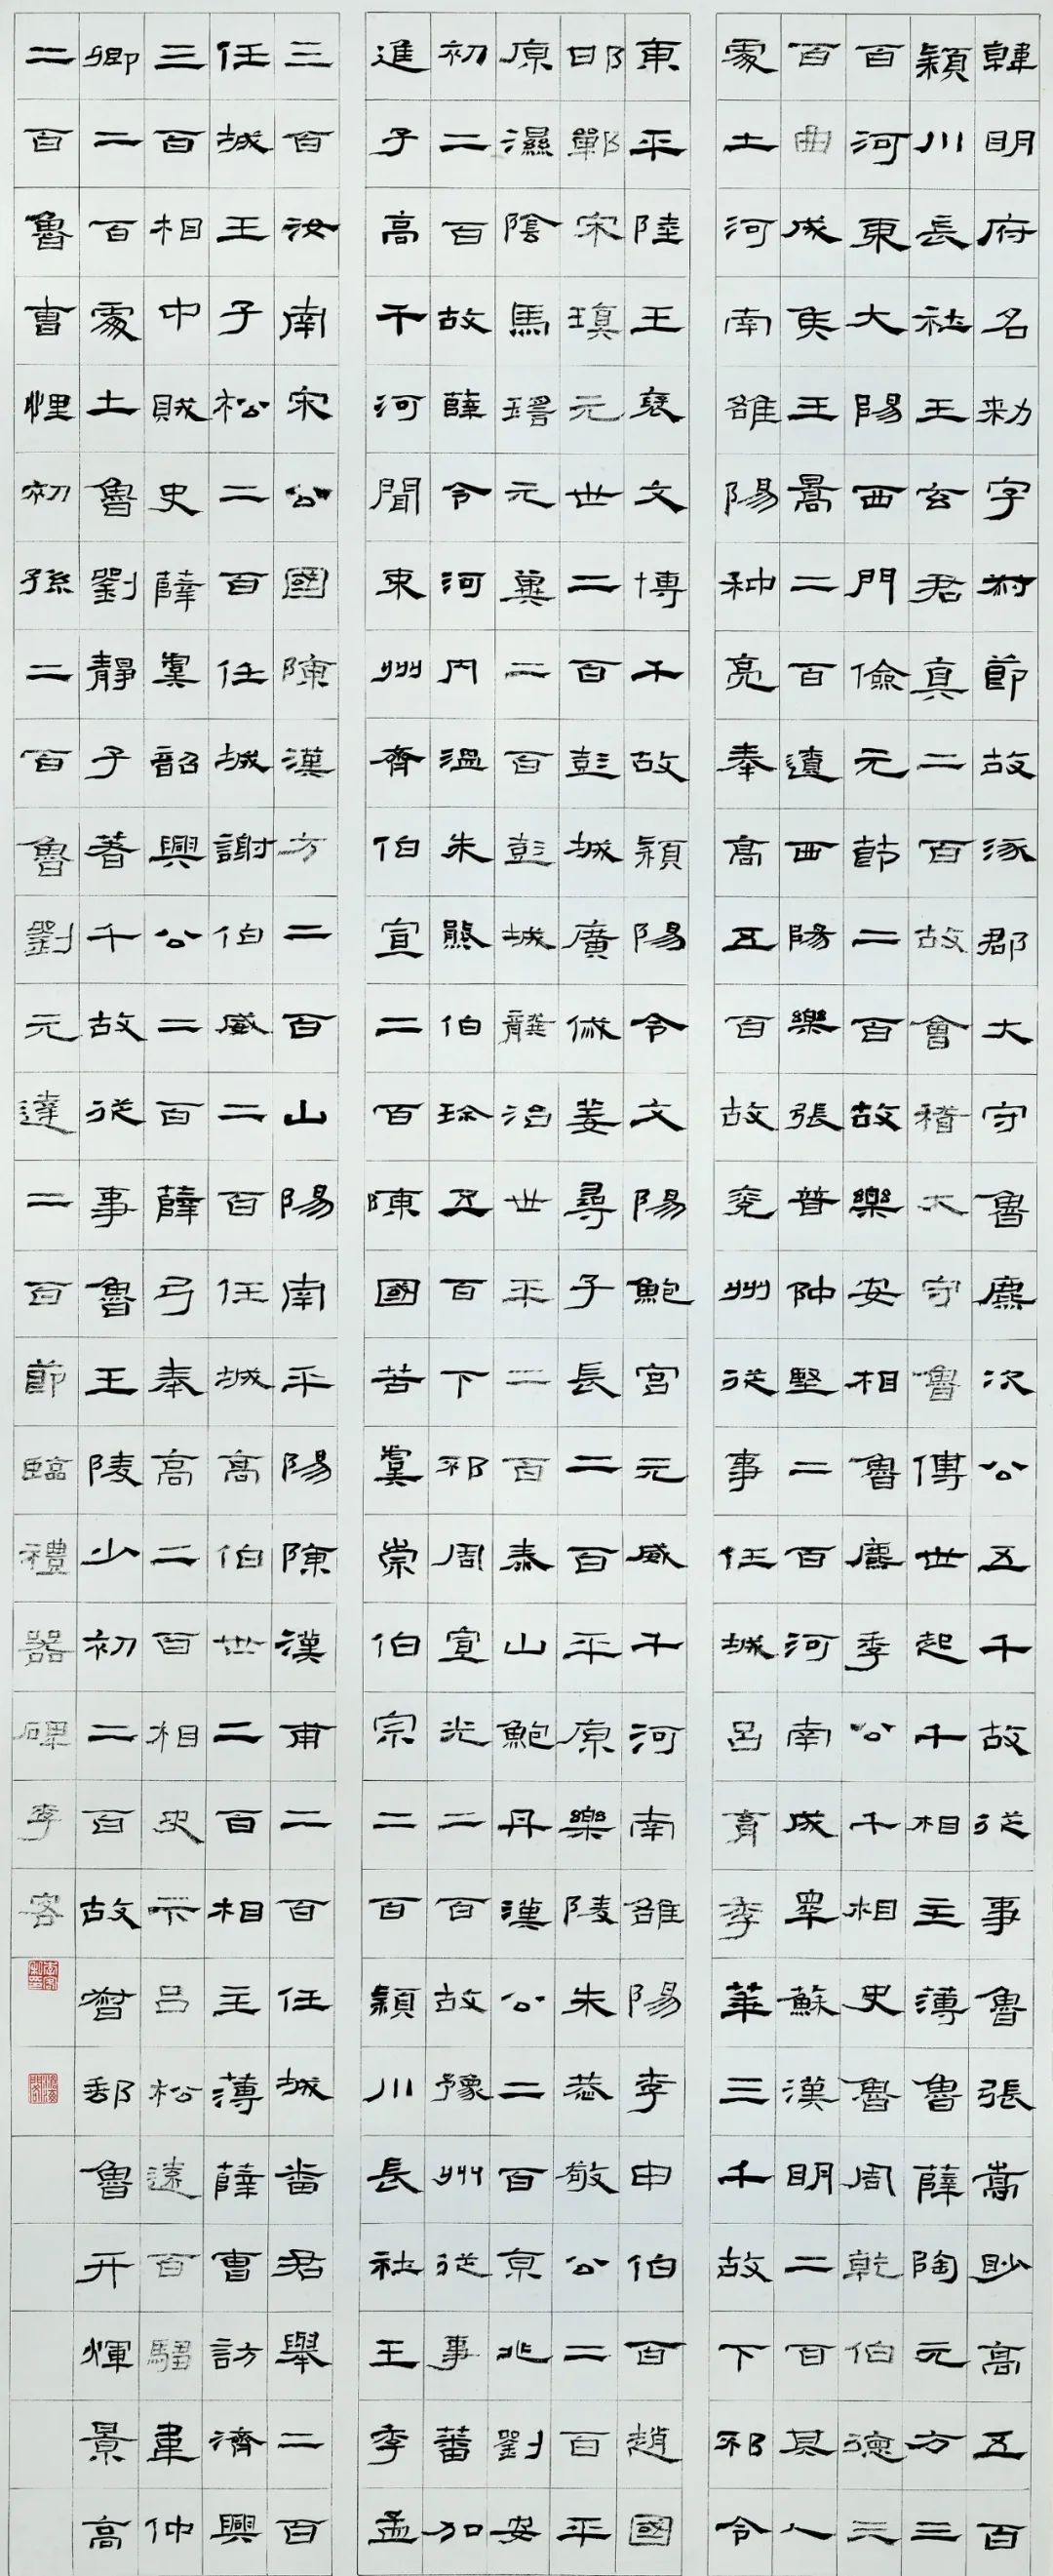 韓明府名勑字叔節故涿郡大守魯麃次公五千故從事魯張嵩眇高五百
穎川長社王玄君真二百故會稽大守魯傅世起千相主薄魯薛陶元方三
百河東大陽西門儉元節二百故樂安相魯麃季公千相史魯周乾伯德三
百曲成侯王暠二百遺西陽樂張普仲堅二百河南成皋蘇漢明二百其人
處土河南雒陽种亮奉高五百故兗州從事任城呂育季華三千故下邳令
東平陸王褒文博千故穎陽令文陽鮑宮元威千河南雒陽李申伯百趙國
邯鄲宋瑱元世二百彭城廣戚姜尋子長二百平原樂陵朱恭敬公二百平
原濕陰馬瑶元冀二百彭城龔治世平二百泰山鮑丹漢公二百京兆劉安
初二百故薛令河內溫朱熊伯珍五百下邳周宣光二百故豫州從事蕃加
進子高千河閒束州齊伯宣二百陳國苦虞崇伯宗二百穎川長社王季孟
三百汝南宋公國陳漢方二百山陽南平陽陳漢甫二百任城番君舉二百
任城王子松二百任城謝伯威二百任城高伯世二百相主薄薛曹訪濟興
三百相中賊史薛虞韶興公二百薛弓奉高二百相史卞呂松遠百騶韋仲
卿二百處土魯劉靜子著千故從事魯王陵少初二百故督郵魯开煇景高
二百魯曹悝初孫二百魯劉元達二百節臨禮器碑李客